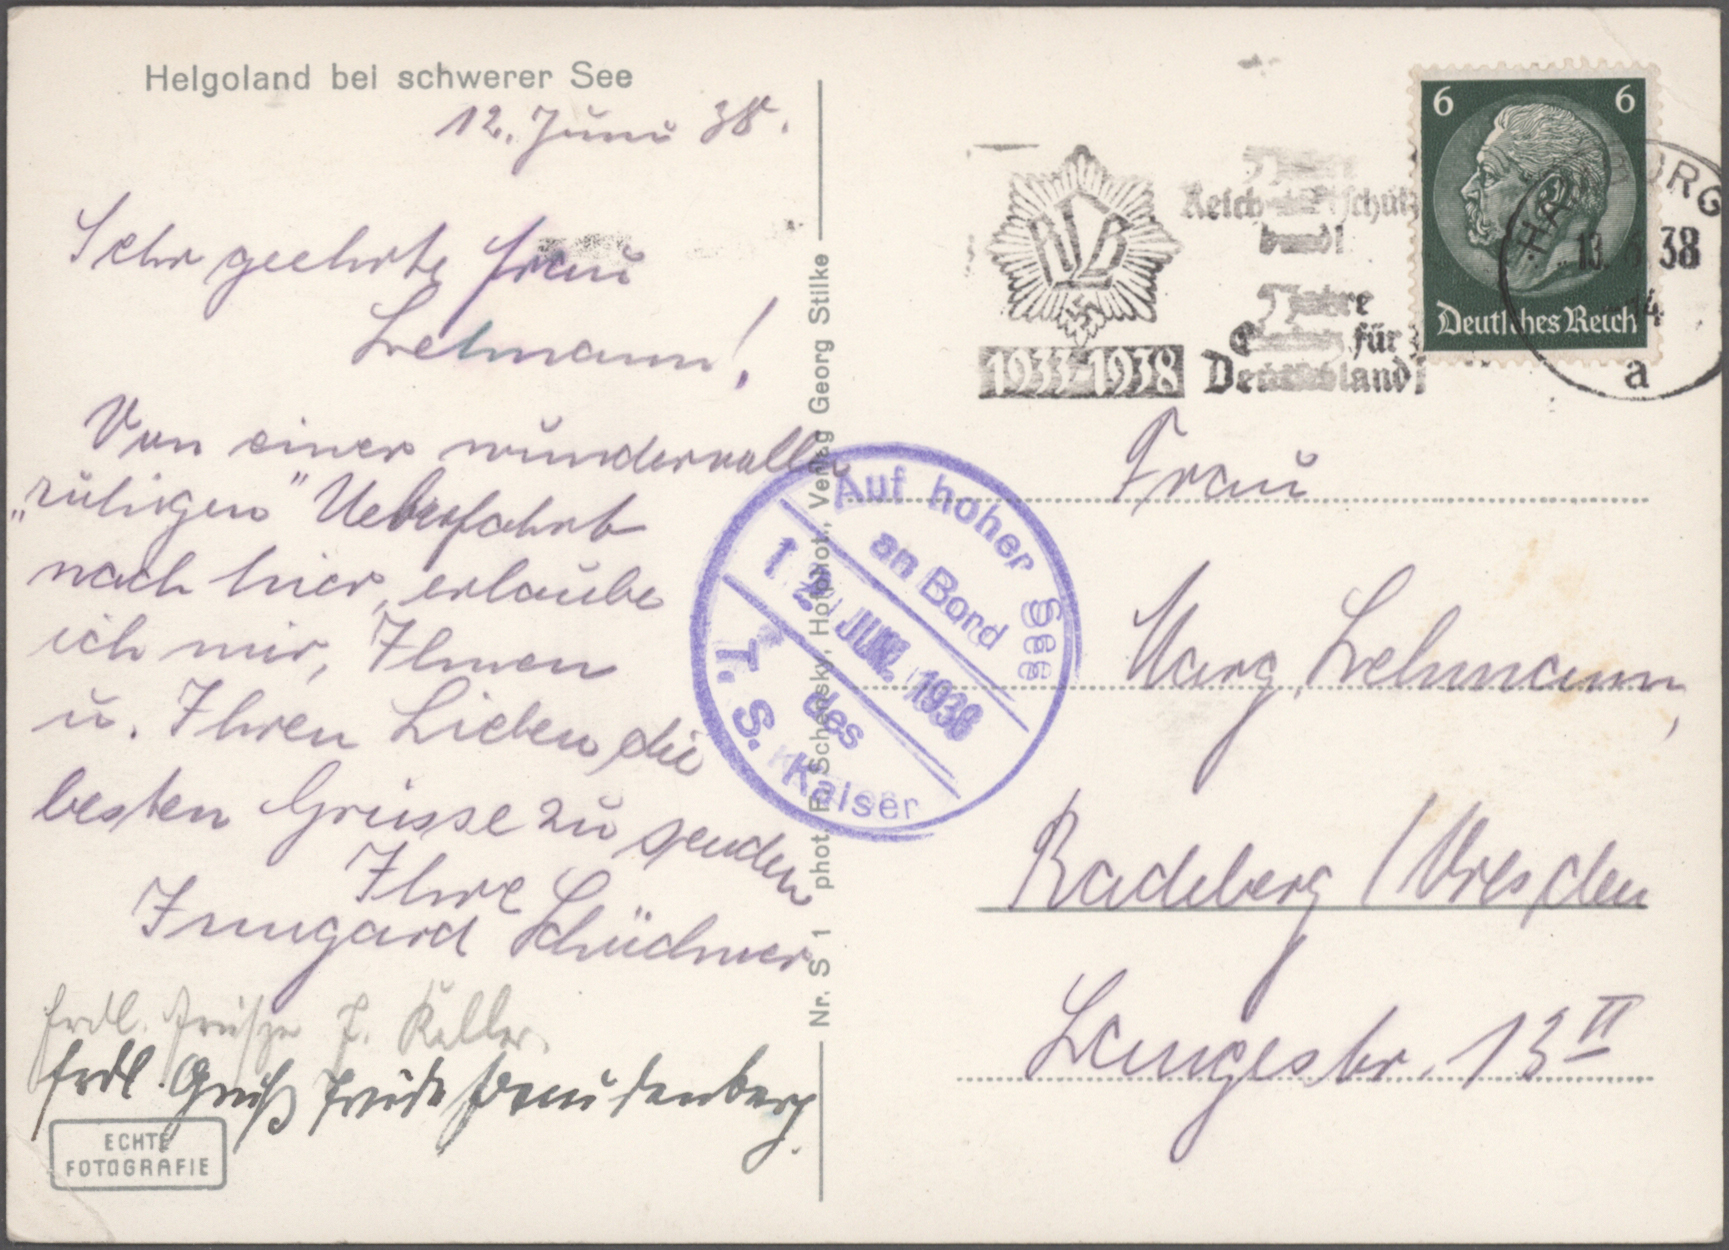 Helgoland bei schwerer See
12. Juni 38.
Sehr geehrte Frau
Lehmann!
Von einer wundervollen
„ruhigen" Ueberfahrt
nach hier, erlaube
ich mir, Ihnen
u. Ihren Lieben die
besten Grüsse zu senden
Ihre
Irmgard
frdl. Grüße F. Keller.
frdl. Gruß Friede
ECHTE
FOTOGRAFIE
Nr. S 1 phot. F. Schensky, Hofphot., Verlag Georg Stilke
Auf hoher See
an Bord
12. JUNI 1938
des
T. S. Kaiser
RLB
1933-1938
5 Jahre
Reichsluftschutz
bund!
5 Jahre
für
Deutschland!
6 6
Deutsches Reich
HAMBURG
13. 6. 38
a
Frau
Marg. Lehmann,
Radeberg / Dresden
Langestr. 13 II